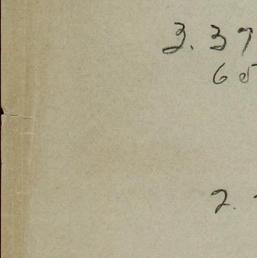 3. 37
65
2.